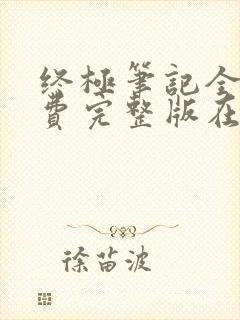 终極筆記全
費完整版在
徐苗波